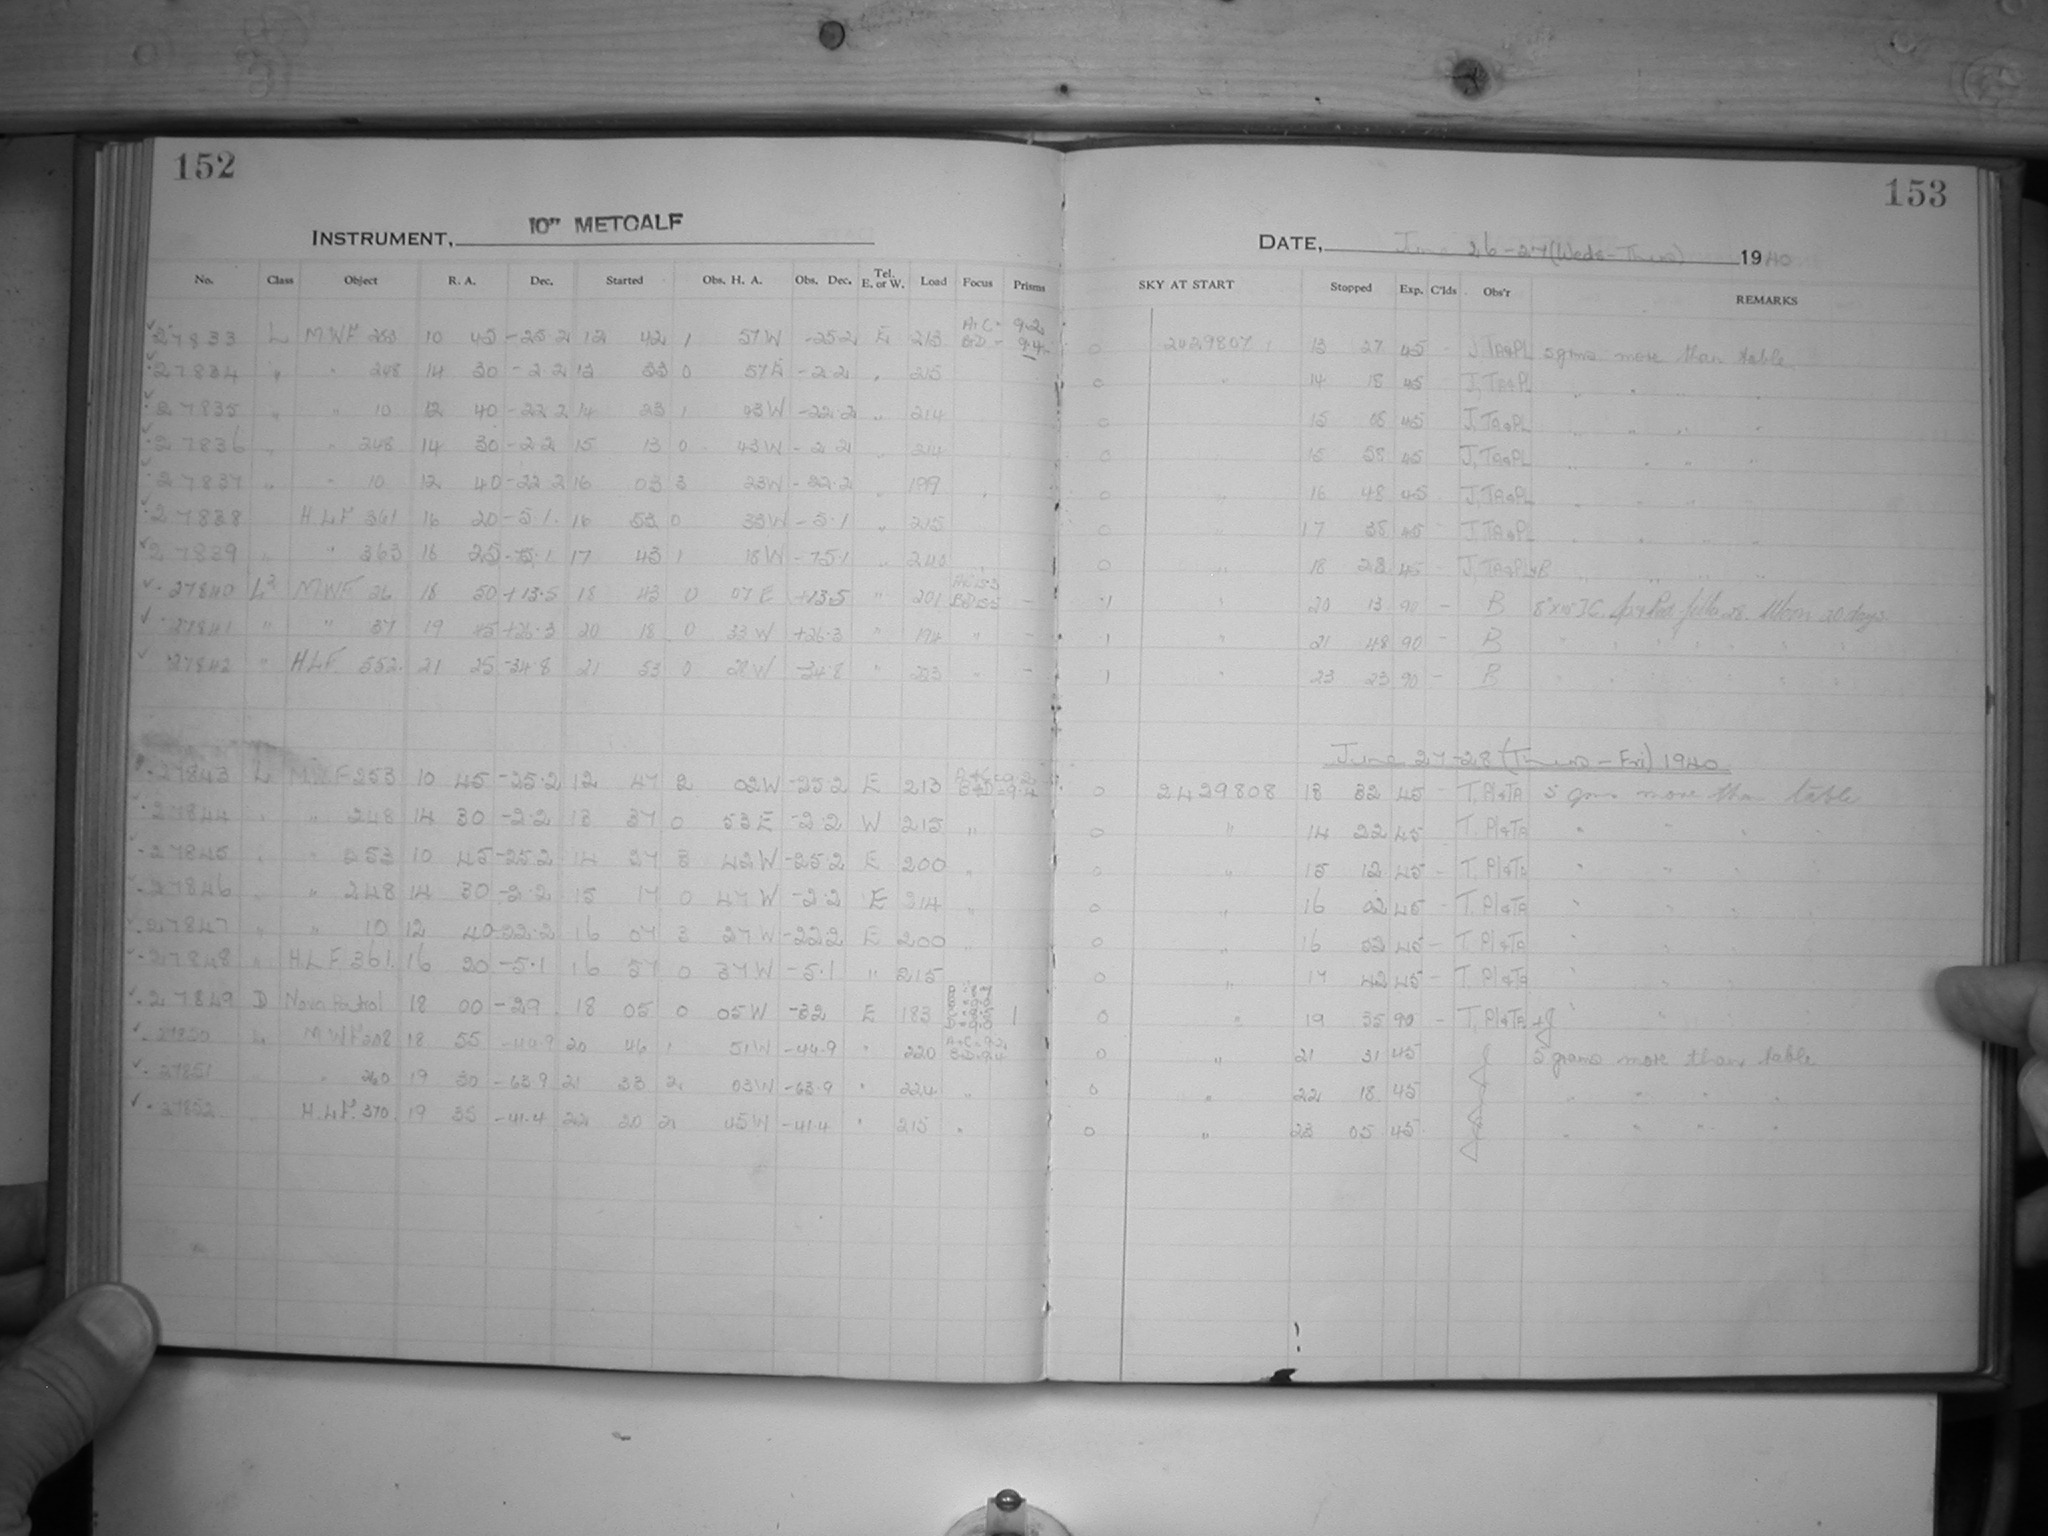 152
INSTRUMENT, 10" METCALF
No. Class Object R. A. Dec. Started Obs. H. A. Obs. Dec. Tel. E. or W. Load Focus Prisms
27833 L MWF 253 10 45 -25.2 12 42 1 57 W -25.2 E 213 A+C = 9.2 B+D = 9.4
27834 " " 248 14 30 -2.2 13 33 0 57 E -2.2 " 215
27835 " " 10 12 40 -22.2 14 23 1 43 W -22.2 " 214
27836 " " 248 14 30 -2.2 15 13 0 43 W -2.2 " 214
27837 " " 10 12 40 -22.2 16 03 3 23 W -22.2 " 199
27838 HLF 361 16 20 -5.1 16 53 0 33 W -5.1 " 215
27839 " " 363 16 25 -75.1 17 43 1 18 W -75.1 " 240
27840 L2 MWF 26 18 50 +13.5 18 43 0 07 E +13.5 " 201
27841 " " 37 19 45 +26.3 20 18 0 33 W +26.3 " 194 " -
27842 " HLF 552 21 25 -34.8 21 53 0 28 W -34.8 " 223 " -
27843 L MWF 253 10 45 -25.2 12 47 2 02 W -25.2 E 213 A+C = 9.2 B+D = 9.4
27844 " " 248 14 30 -2.2 13 37 0 53 E -2.2 W 215 "
27845 " " 253 10 45 -25.2 14 27 3 42 W -25.2 E 200 "
27846 " " 248 14 30 -2.2 15 17 0 47 W -2.2 E 214 "
27847 " " 10 12 40 -22.2 16 07 3 27 W -22.2 E 200 "
27848 " HLF 361 16 20 -5.1 16 57 0 37 W -5.1 " 215
27849 D Nova Patrol 18 00 -29 18 05 0 05 W -32 E 183 1
27850 L MWF 208 18 55 -44.9 20 46 1 51 W -44.9 " 220 A+C = 9.2 B+D = 9.4
27851 " " 260 19 30 -63.9 21 33 2 03 W -63.9 " 224 "
27852 HLF 370 19 35 -41.4 22 20 2 45 W -41.4 " 215 "
153
DATE, June 26-27 (Weds-Thurs) 1940
SKY AT START Stopped Exp. C'lds Obs'r REMARKS
0 2429807 13 27 45 - J, TA&PL 5 grams more than table
0 " 14 18 45 J, TA&PL " " " "
0 15 08 45 J, TA&PL " " " "
0 15 58 45 J, TA&PL " " " "
0 " 16 48 45 J, TA&PL " " " "
0 " 17 38 45 - J, TA&PL " " " "
0 " 18 28 45 - J, TA&PL+B " " " "
1 " 20 13 90 - B 8"x10" I.C. Moon 20 days
1 " 21 48 90 - B " " " "
1 " 23 23 90 - B " " " "
June 27-28 (Thurs-Fri) 1940
0 2429808 13 32 45 - T, Pl&TA 5 grams more than table
0 " 14 22 45 T, Pl&TA " " "
0 " 15 12 45 - T, Pl&TA " " "
0 " 16 02 45 - T, Pl&TA " " "
0 " 16 52 45 - T, Pl&TA " " "
0 " 17 42 45 - T, Pl&TA " " "
0 " 19 35 90 - T, Pl&TA+J " " "
0 " 21 31 45 J 5 grams more than table
0 " 22 18 45 " " " "
0 " 23 05 45 " " " "